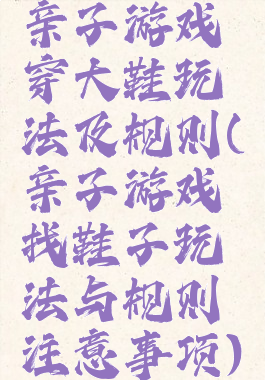 亲子游戏
穿大鞋玩
法及规则(
亲子游戏
找鞋子玩
法与规则
注意事项)